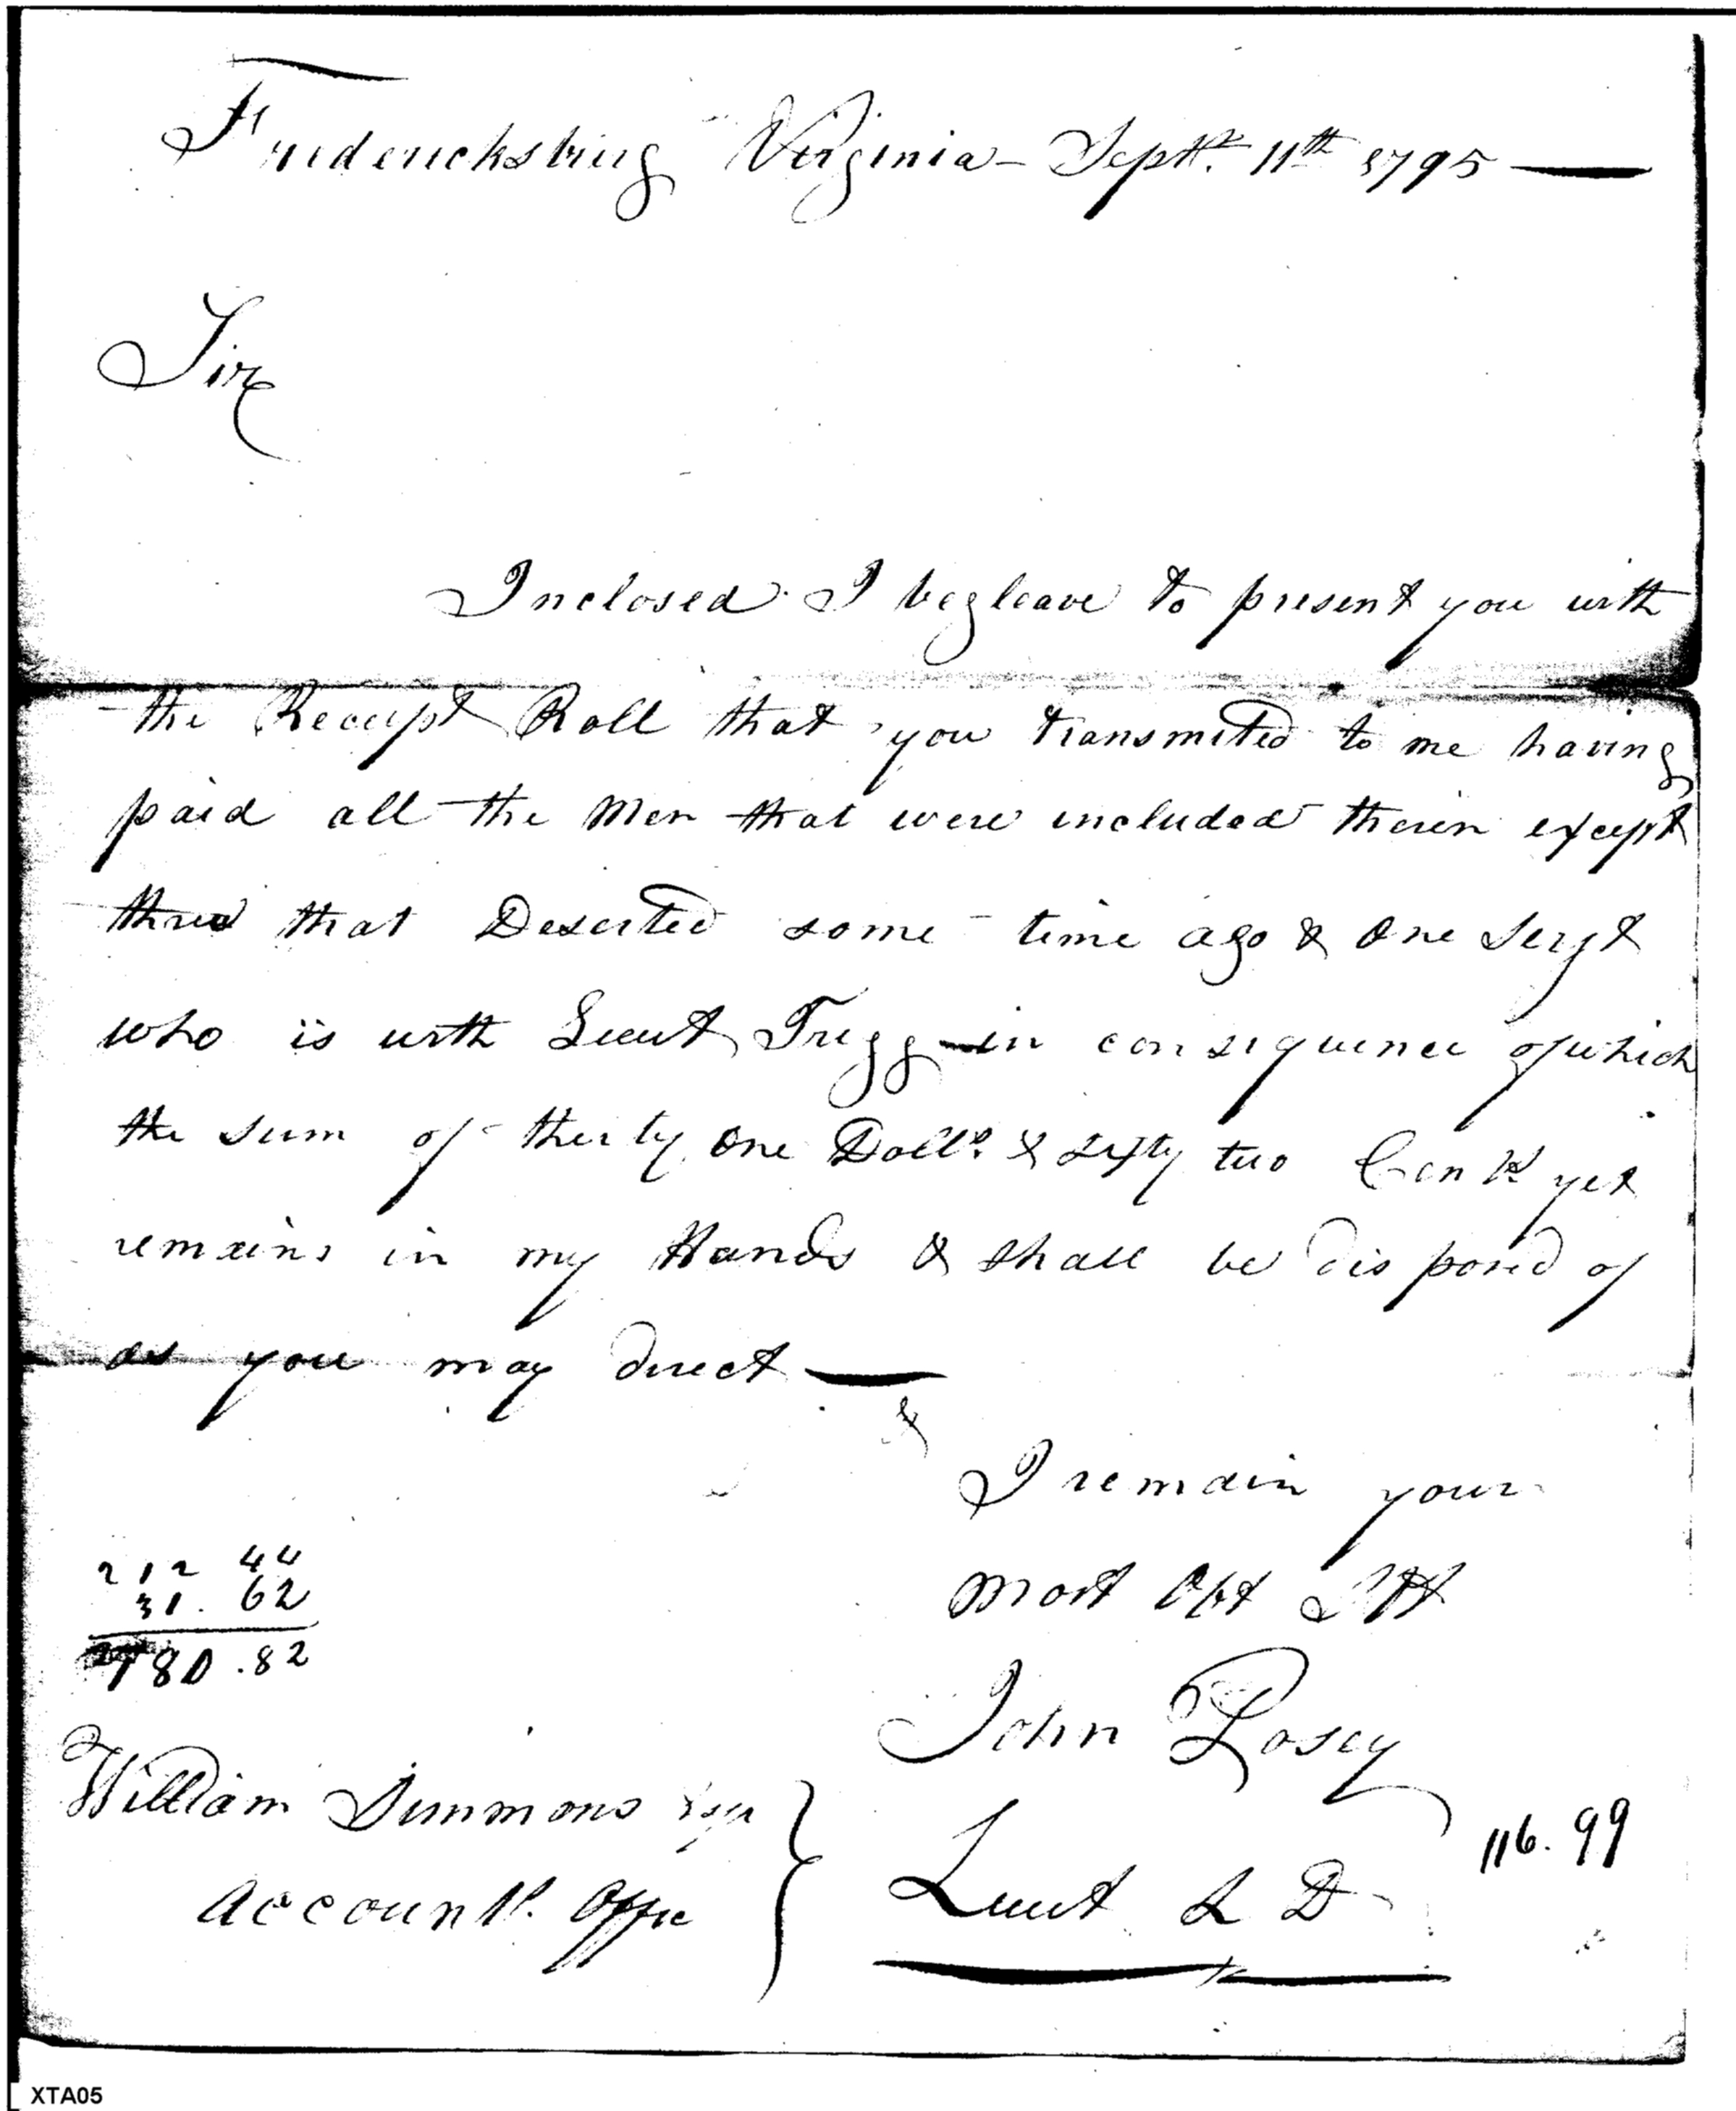 Fredericksburg Virginia - Septr. 11th 1795 —
Sir
Inclosed I beg leave to present you with
the Receipt Roll that you transmited to me having
paid all the Men that were included therin except
three that Deserted some time ago & One Sergt
who is with Lieut Trigg in consequence of which
the sum of therty One Dolls. & sixty two Cents yet
remains in my Hands & shall be disposed of
as you may direct —
&
I remain your
most Obt
John Posey
Lieut L D
212 44
31. 62
180.82
William Simmons Esqr
Accounts. Office
116.99
XTA05